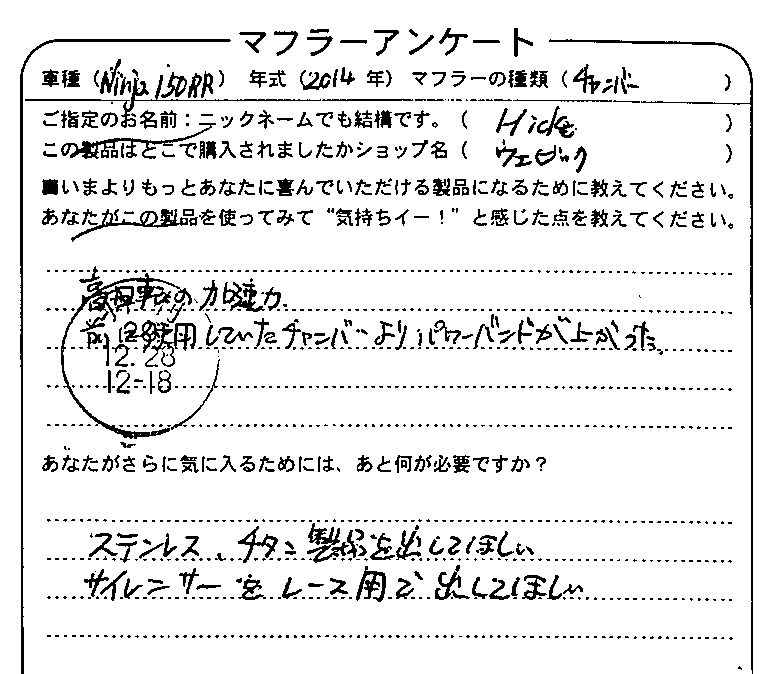 マフラーアンケート
車種（Ninja 150RR） 年式（2014年） マフラーの種類（チャンバー）
ご指定のお名前：ニックネームでも結構です。（ Hide ）
この製品はどこで購入されましたかショップ名（ ウェビック ）
いまよりもっとあなたに喜んでいただける製品になるために教えてください。
あなたがこの製品を使ってみて“気持ちイー！”と感じた点を教えてください。
高回転の加速力.
前に使用していたチャンバーよりパワーバンドが上がった。
12.28
12-18
あなたがさらに気に入るためには、あと何が必要ですか？
ステンレス、チタン製品を出してほしい
サイレンサーをレース用で出してほしい